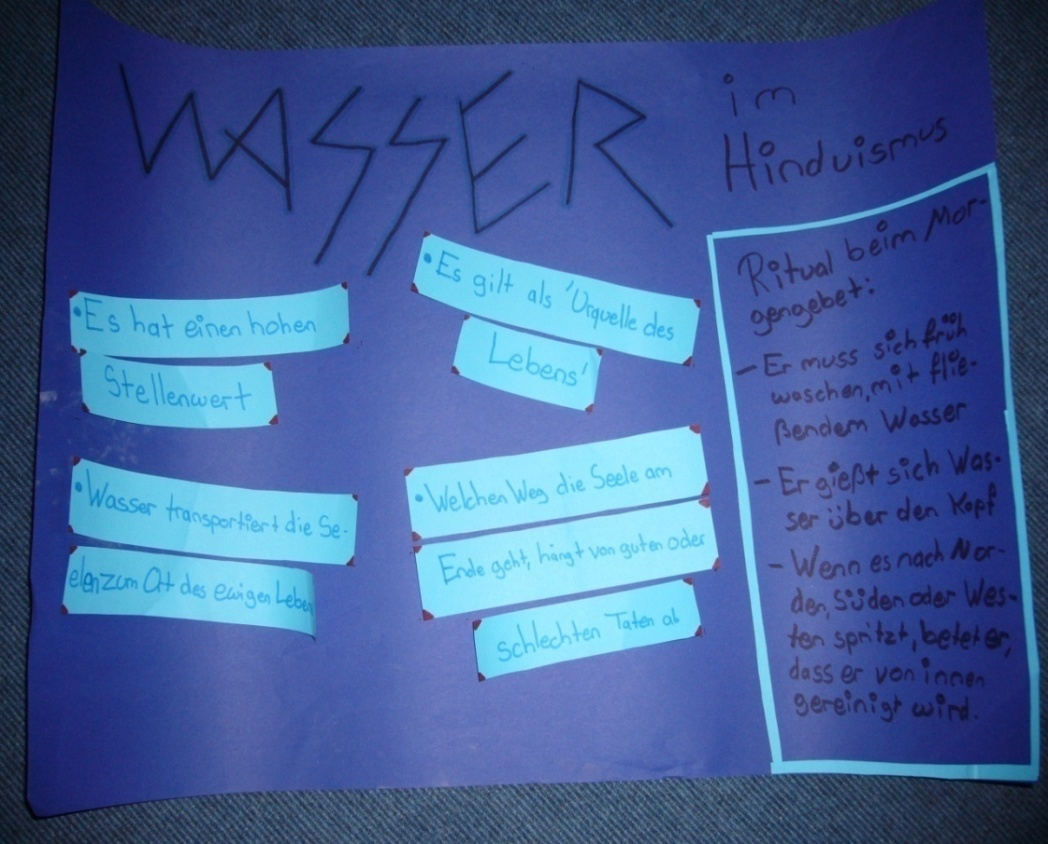 WASSER
im
Hinduismus
• Es hat einen hohen
Stellenwert
• Es gilt als 'Urquelle des
Lebens'
• Wasser transportiert die Se-
elen zum Ort des ewigen Leben
• Welchen Weg die Seele am
Ende geht, hängt von guten oder
schlechten Taten ab
Ritual beim Mor-
gengebet:
- Er muss sich früh
waschen, mit flie-
ßendem Wasser
- Er gießt sich Was-
ser über den Kopf
- Wenn es nach Nor-
den, Süden oder Wes-
ten spritzt, betet er,
dass er von innen
gereinigt wird.